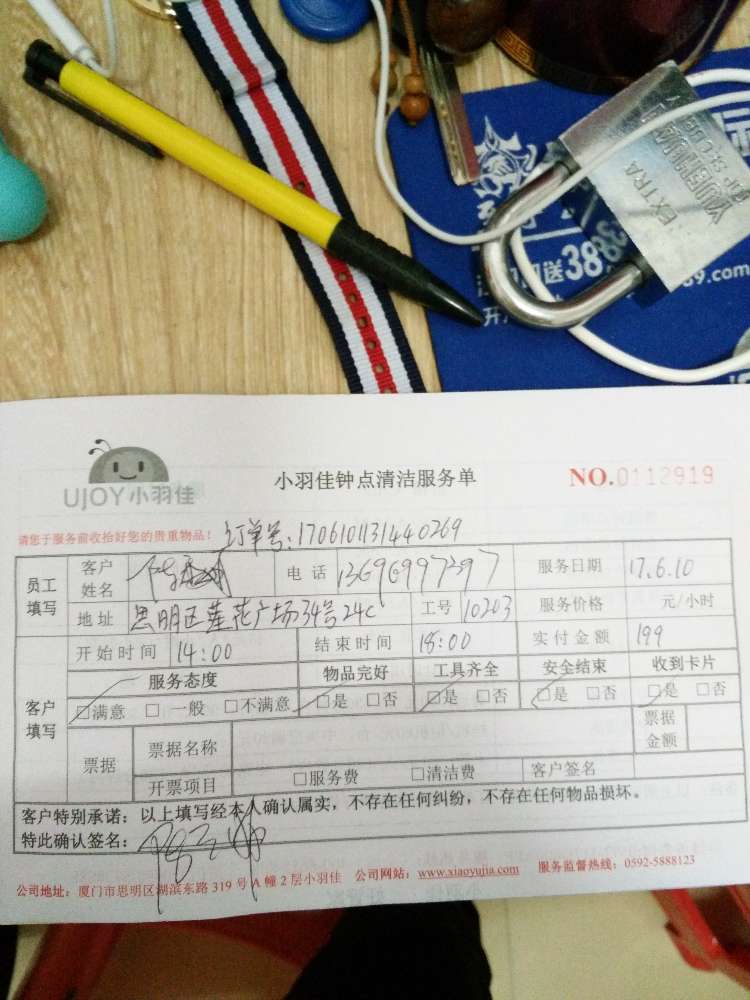 EXTRA
388
UJOY小羽佳
小羽佳钟点清洁服务单
NO.0112919
请您于服务前收拾好您的贵重物品！ 订单号:1706101131440269
员工填写 客户姓名 电话 13696997397 服务日期 17.6.10
地址 思明区莲花广场34号24C 工号 10203 服务价格 元/小时
客户填写 开始时间 14:00 结束时间 18:00 实付金额 199
服务态度 物品完好 工具齐全 安全结束 收到卡片
☑满意 □一般 □不满意 ☑是 □否 ☑是 □否 ☑是 □否 ☑是 □否
票据 票据名称 票据金额
开票项目 □服务费 □清洁费 客户签名
客户特别承诺：以上填写经本人确认属实，不存在任何纠纷，不存在任何物品损坏。
特此确认签名：
公司地址：厦门市思明区湖滨东路 319 号 A 幢 2 层小羽佳 公司网站：www.xiaoyujia.com 服务监督热线：0592-5888123